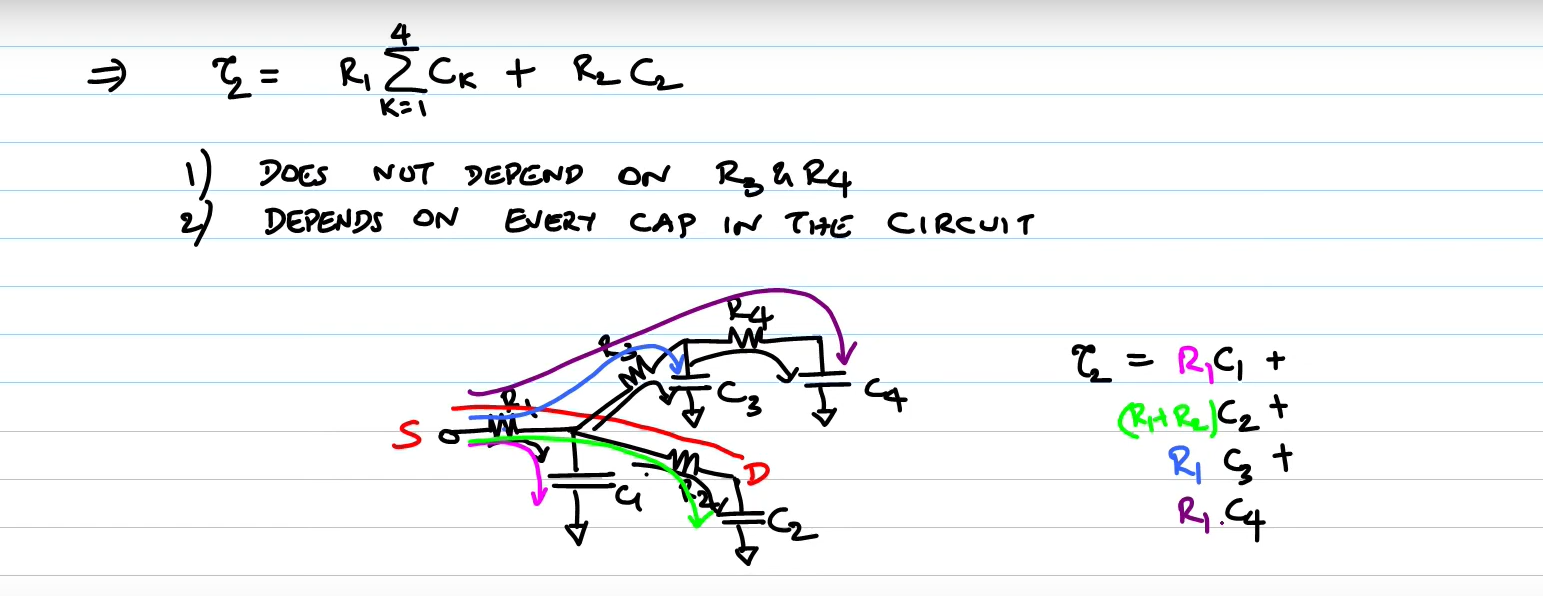 ⇒ τ₂ = R₁ 4 Σ K=1 Cₖ + R₂ C₂
1) DOES NOT DEPEND ON R₃ & R₄
2) DEPENDS ON EVERY CAP IN THE CIRCUIT
R₄
R₃
C₃
C₄
R₁
S
D
C₁
R₂
C₂
τ₂ = R₁C₁ +
(R₁+R₂)C₂ +
R₁ C₃ +
R₁.C₄